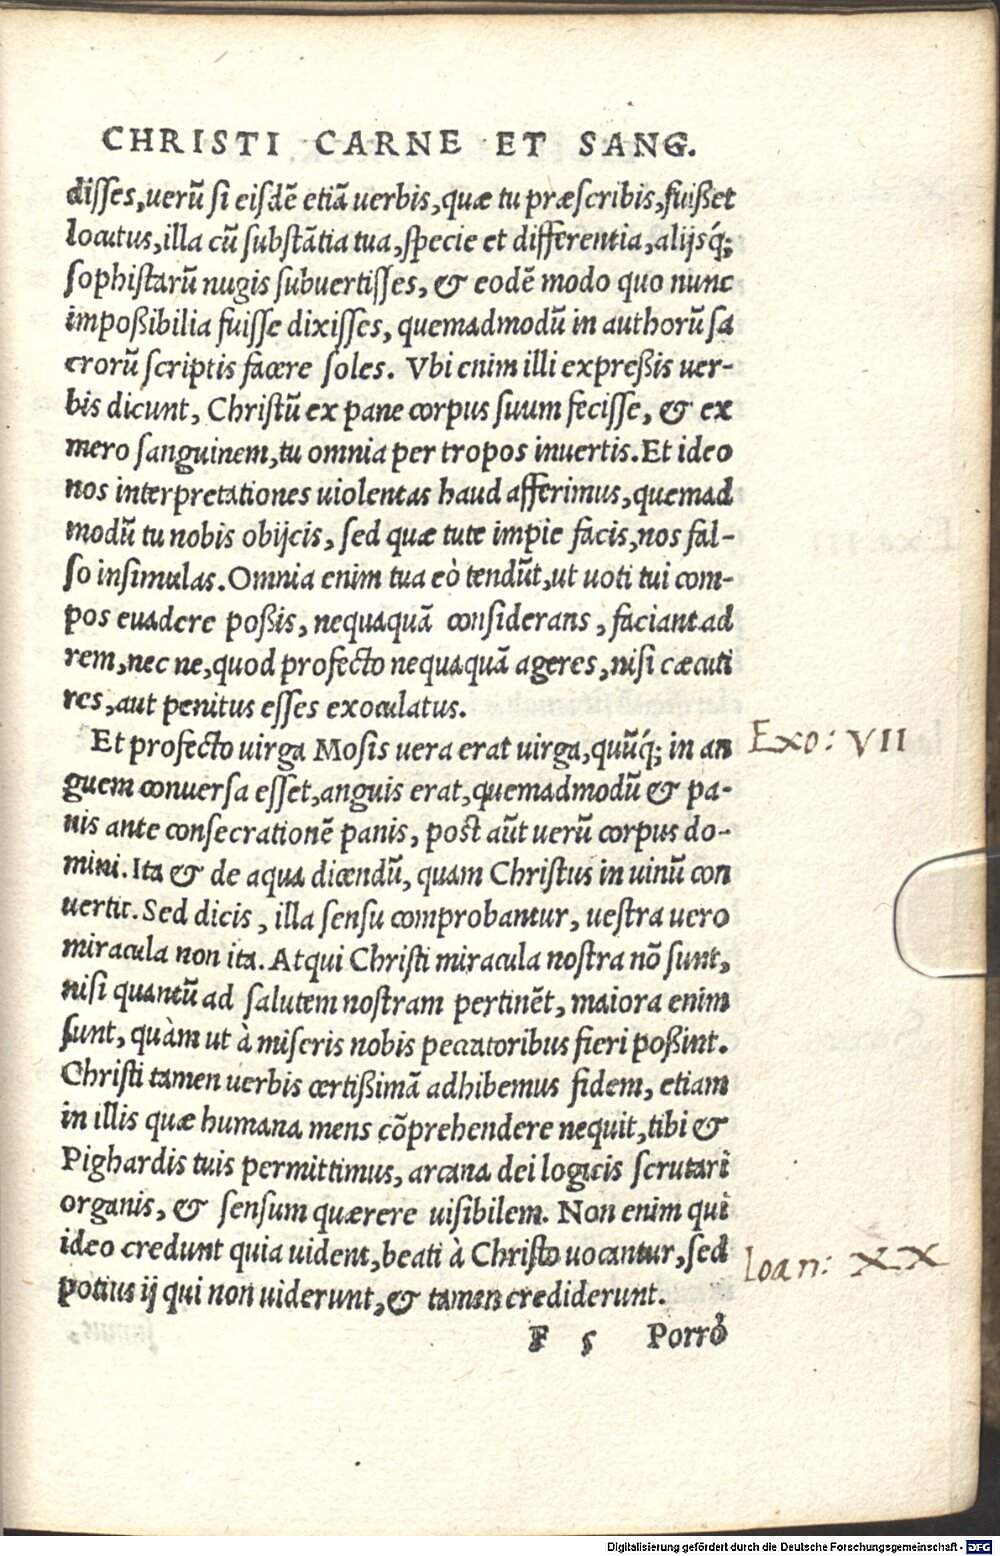 CHRISTI CARNE ET SANG.
disses, uerũ si eisdẽ etiã uerbis, quæ tu præscribis, fuißet
locutus, illa cũ substãtia tua, specie et differentia, alijsq́;
sophistarũ nugis subuertisses, & eodẽ modo quo nunc
impoßibilia fuisse dixisses, quemadmodũ in authorũ sa
crorũ scriptis facere soles. Vbi enim illi expreßis uer-
bis dicunt, Christũ ex pane corpus suum fecisse, & ex
mero sanguinem, tu omnia per tropos inuertis. Et ideo
nos interpretationes uiolentas haud afferimus, quemad
modũ tu nobis obijcis, sed quæ tute impie facis, nos fal-
so insimulas. Omnia enim tua eò tendũt, ut uoti tui com-
pos euadere poßis, nequaquã considerans, faciant ad
rem, nec ne, quod profecto nequaquã ageres, nisi cæcuti
res, aut penitus esses exoculatus.
Et profecto uirga Mosis uera erat uirga, quũq́; in an
guem conuersa esset, anguis erat, quemadmodũ & pa-
nis ante consecrationẽ panis, post aũt uerũ corpus do-
mini. Ita & de aqua dicendũ, quam Christus in uinũ con
uertit. Sed dicis, illa sensu comprobantur, uestra uero
miracula non ita. Atqui Christi miracula nostra nõ sunt,
nisi quantũ ad salutem nostram pertinẽt, maiora enim
sunt, quàm ut à miseris nobis peccatoribus fieri poßint.
Christi tamen uerbis certißimã adhibemus fidem, etiam
in illis quæ humana mens cõprehendere nequit, tibi &
Pighardis tuis permittimus, arcana dei logicis scrutari
organis, & sensum quærere uisibilem. Non enim qui
ideo credunt quia uident, beati à Christo uocantur, sed
potius ij qui non uiderunt, & tamen crediderunt.
F 5 Porrò
Exo: VII
Ioan: XX
Digitalisierung gefördert durch die Deutsche Forschungsgemeinschaft - DFG